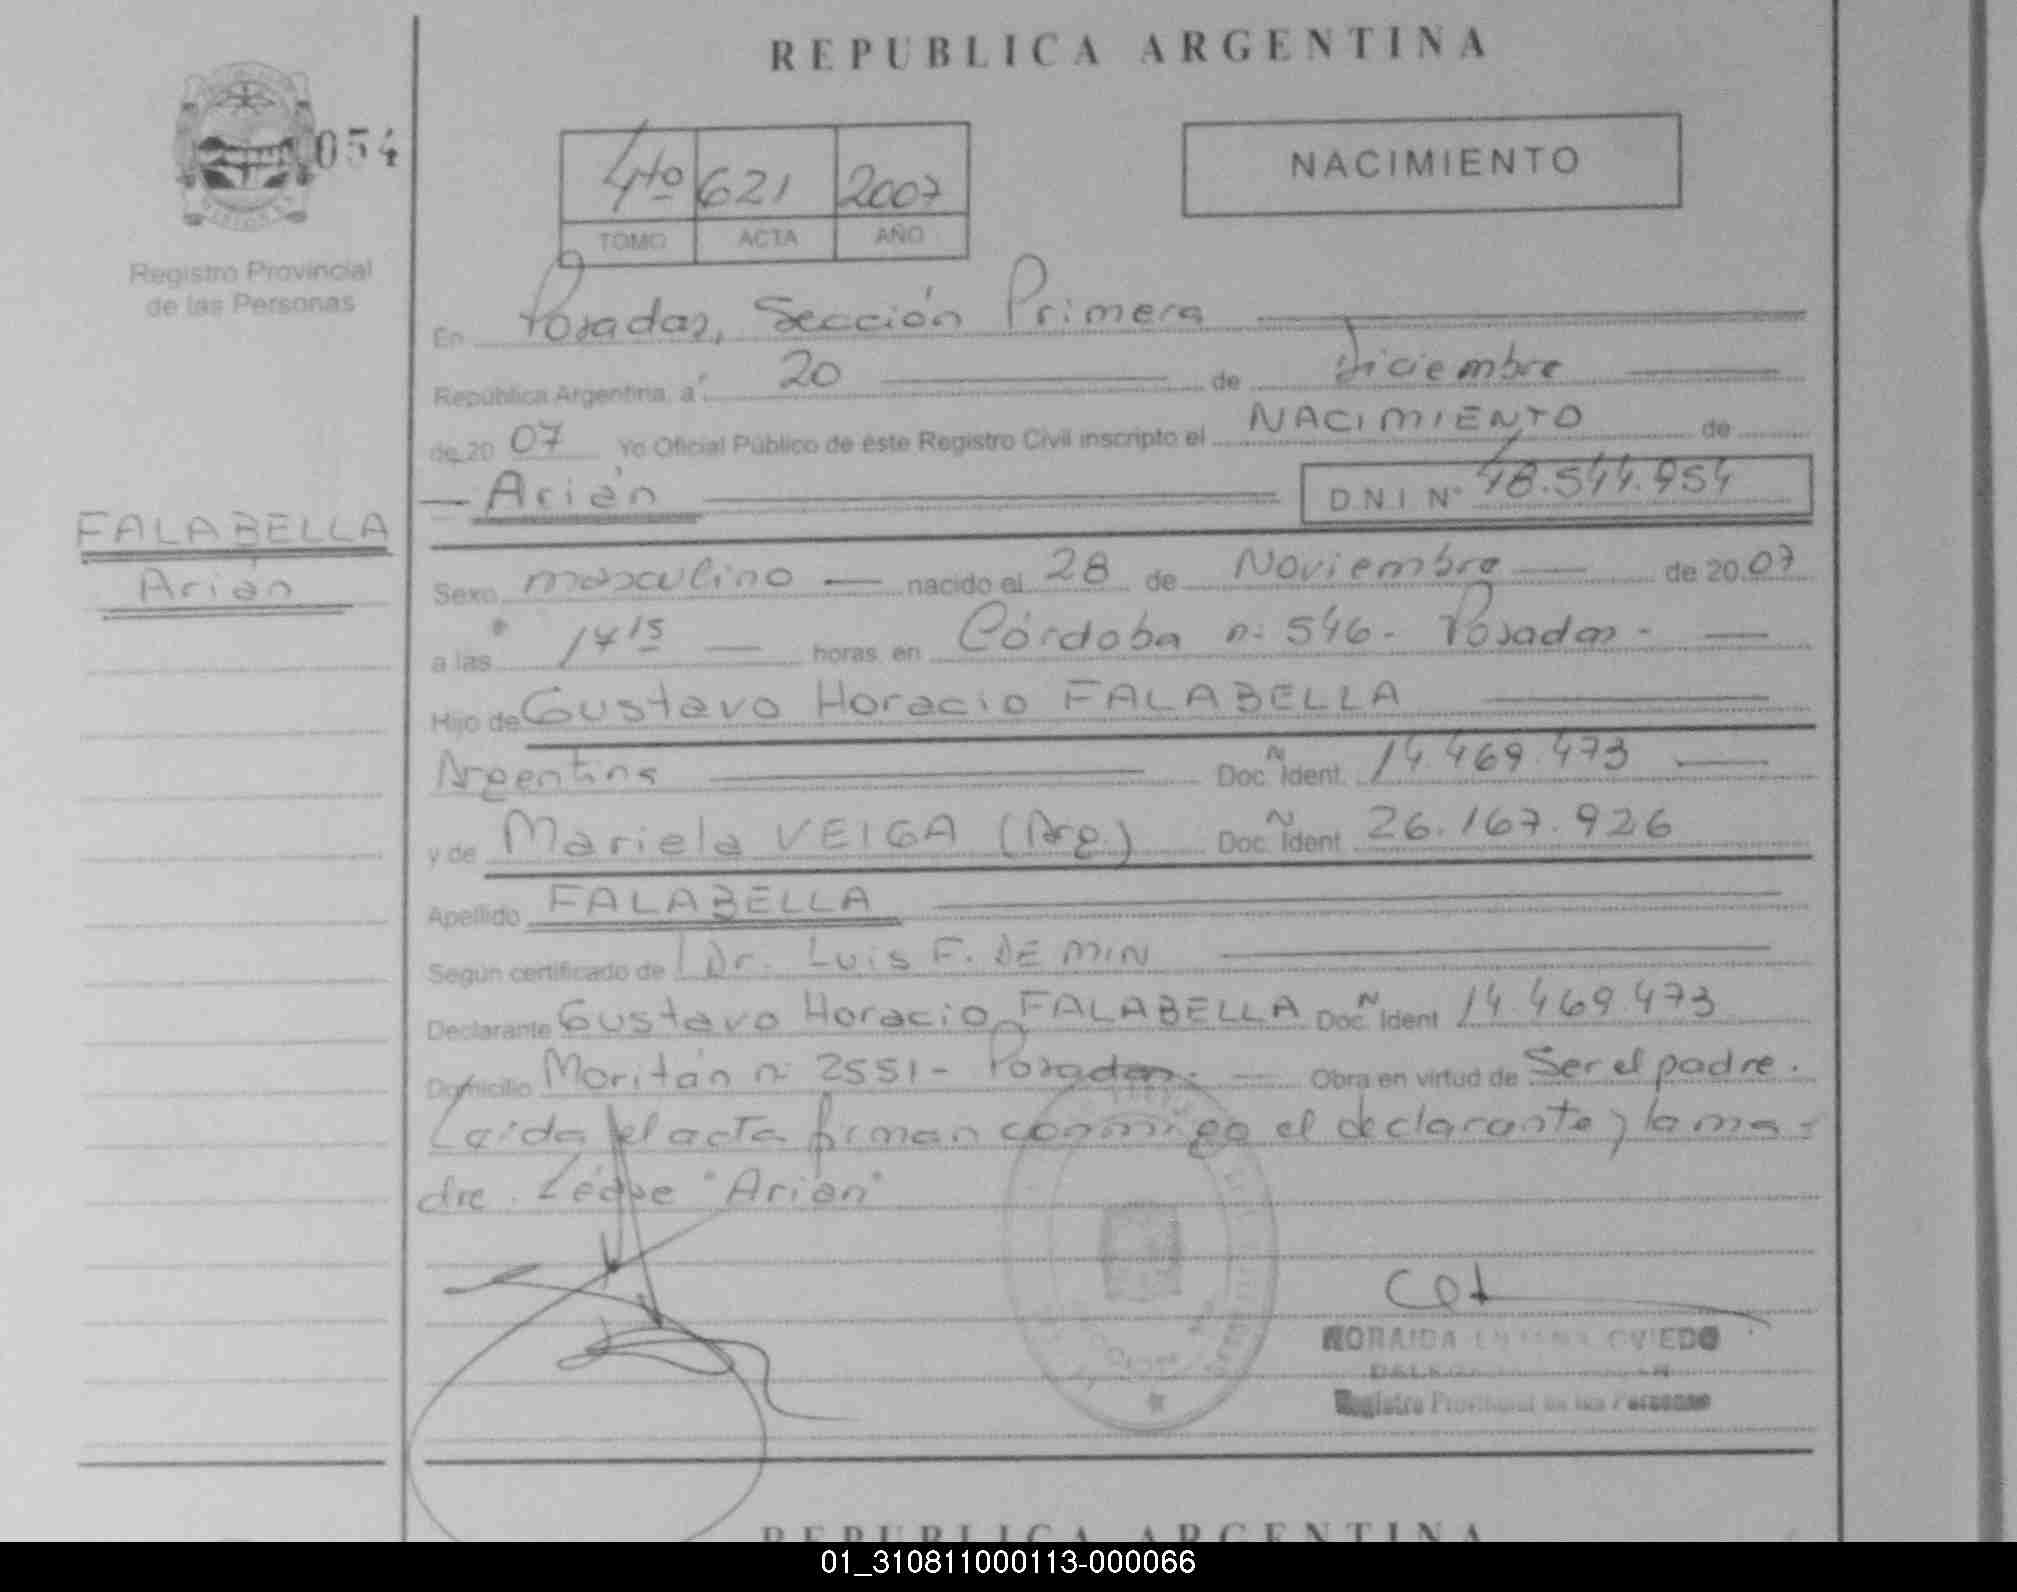 REPUBLICA ARGENTINA
054
4to 621 2007
TOMO ACTA AÑO
NACIMIENTO
Registro Provincial
de las Personas
En Posadas, Sección Primera
República Argentina, a 20 de Diciembre
de 20 07 Yo Oficial Público de éste Registro Civil inscripto el NACIMIENTO de
Arián D.N.I N° 48.544.954
FALABELLA
Arián
Sexo masculino nacido el 28 de Noviembre de 20 07
a las 14 15 horas, en Córdoba n: 546 - Posadas -
Hijo de Gustavo Horacio FALABELLA
Argentina Doc. Ñ Ident. 14.469.473
y de Mariela VEIGA (Arg.) Doc. Ñ Ident. 26.167.926
Apellido FALABELLA
Según certificado de Dr. Luis F. DE MIN
Declarante Gustavo Horacio FALABELLA Doc. Ñ Ident 14.469.473
Domicilio Moritán n: 2551 - Posadas. Obra en virtud de Ser el padre.
Leída el acta firman conmigo el declarante y la ma-
dre. Léase "Arián"
OVIEDO
Registro Provincial de las Personas
REPUBLICA ARGENTINA
01_310811000113-000066